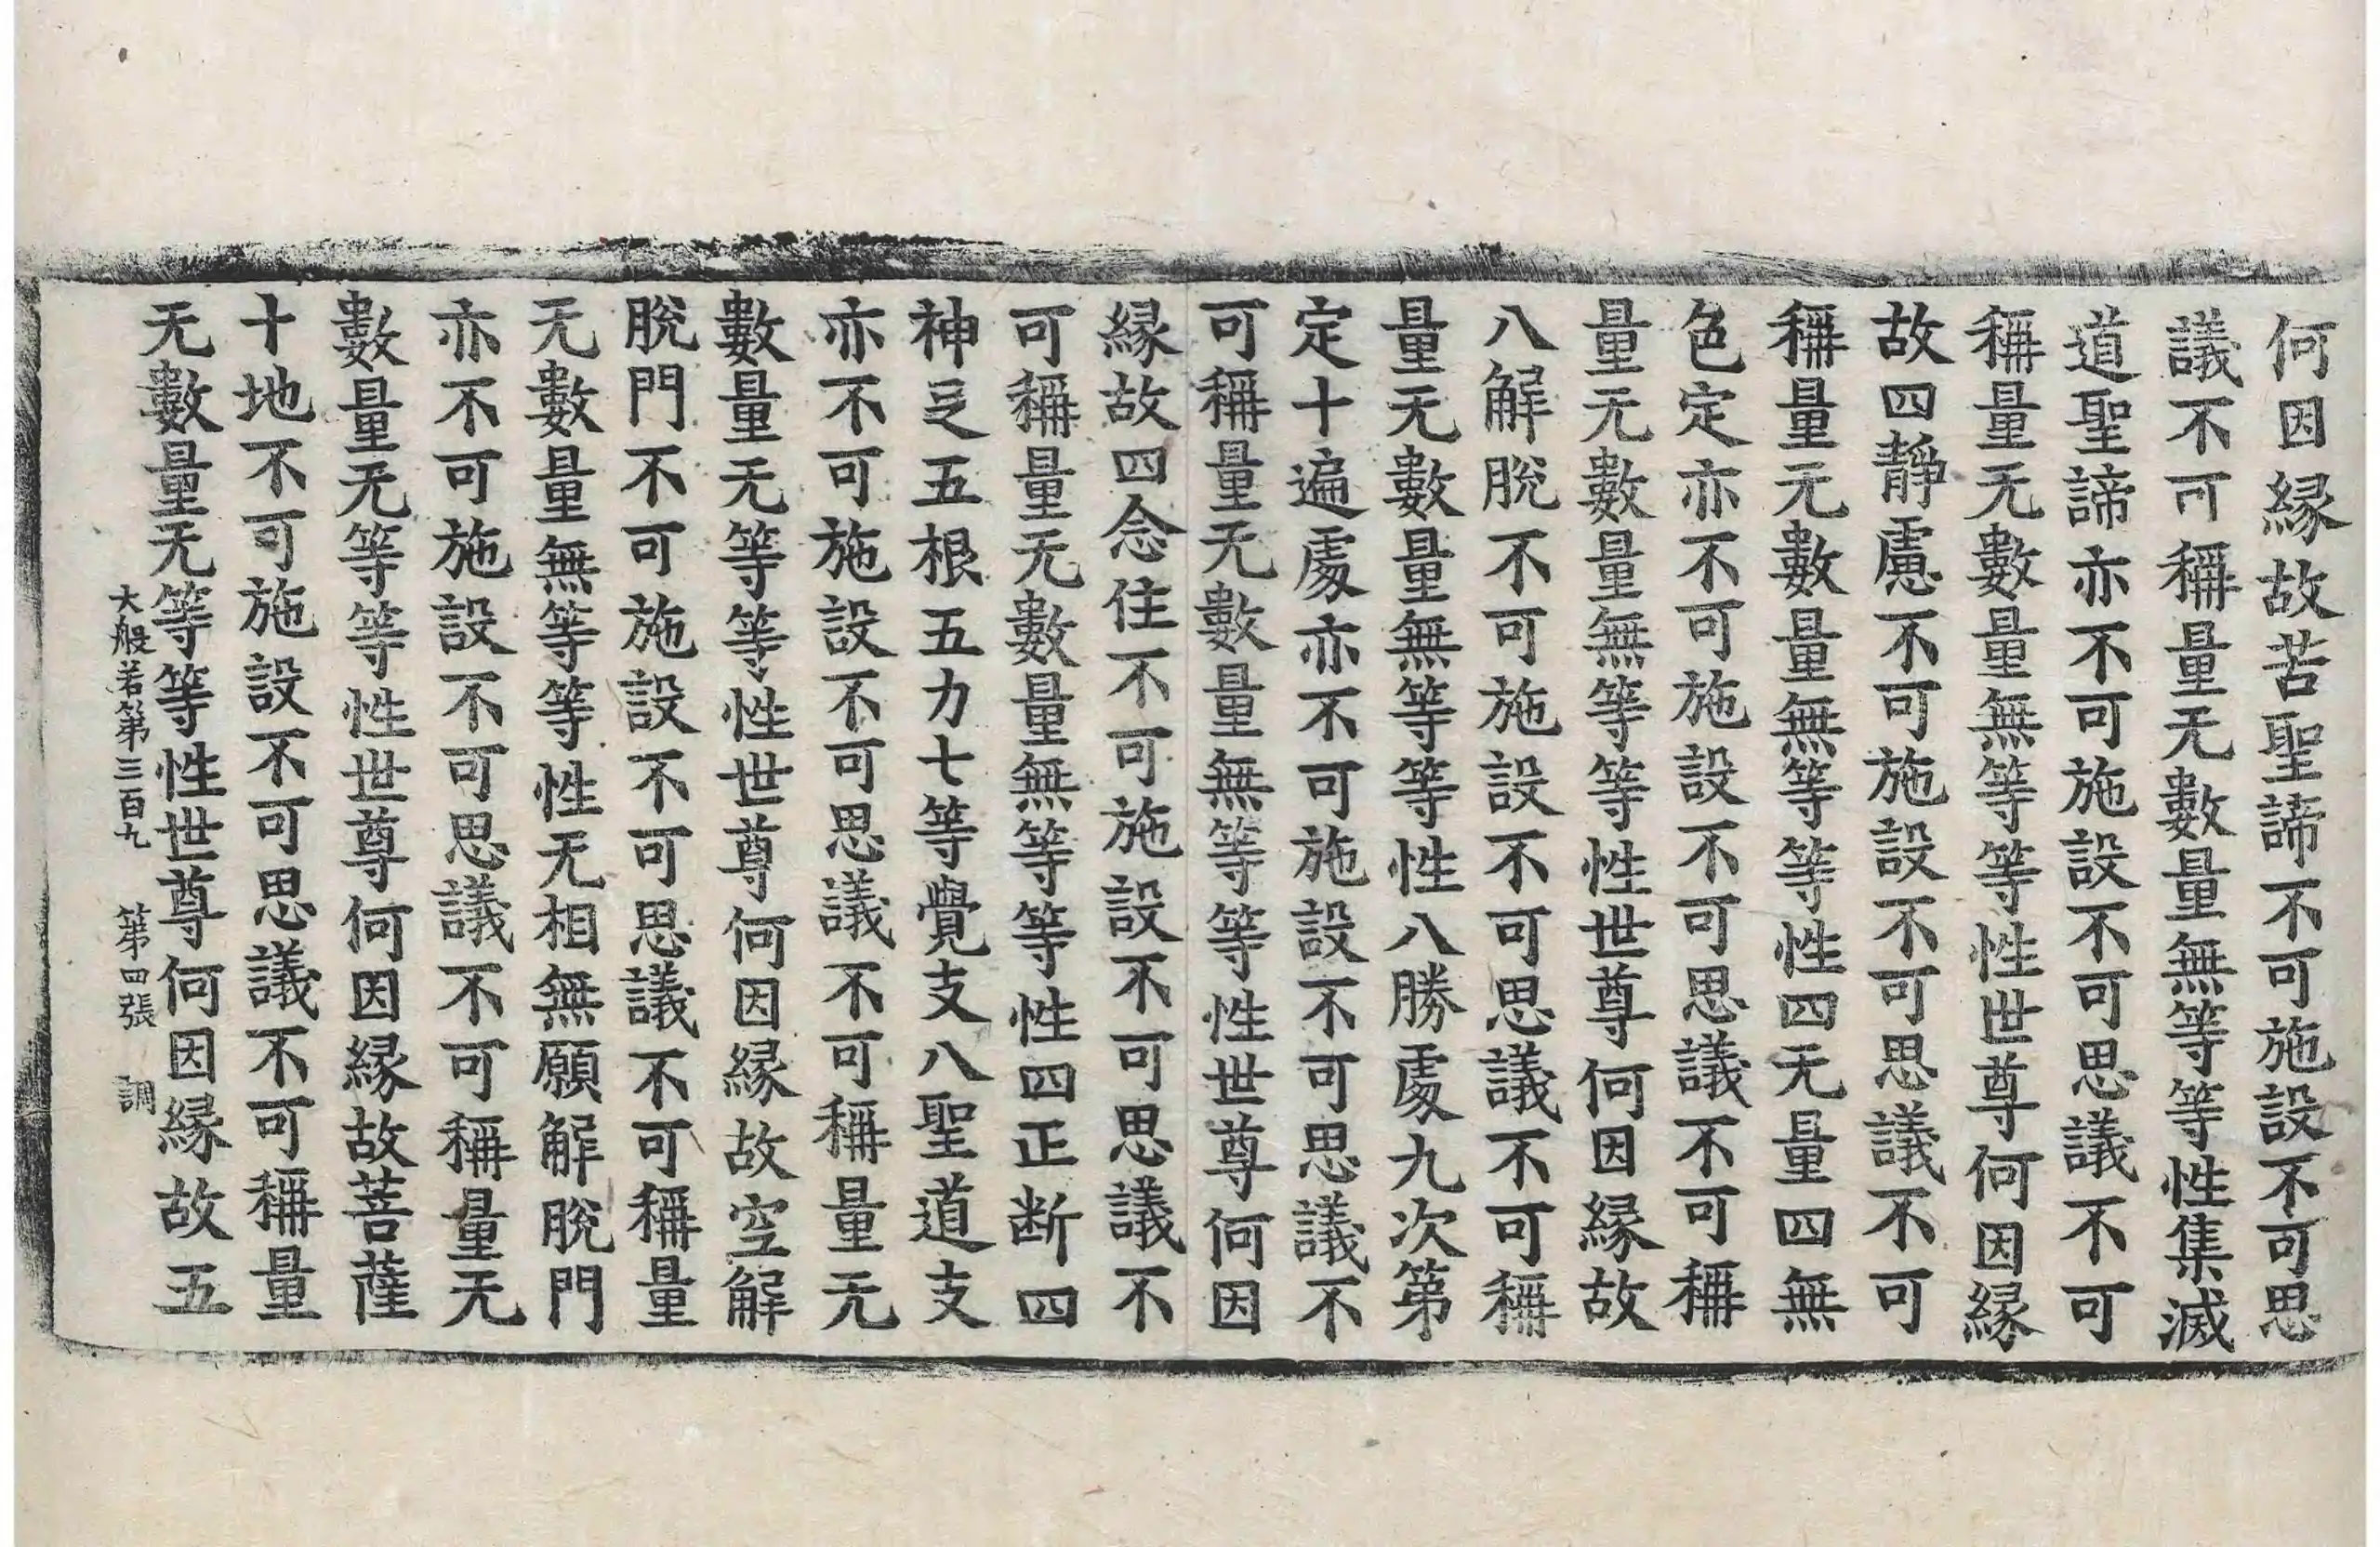 何因縁故苦聖諦不可施設不可思
議不可稱量无數量無等等性集滅
道聖諦亦不可施設不可思議不可
稱量无數量無等等性世尊何因縁
故四靜慮不可施設不可思議不可
稱量元數量無等等性四无量四無
色定亦不可施設不可思議不可稱
量无數量無等等性世尊何因縁故
八解脫不可施設不可思議不可稱
量无數量無等等性八勝處九次第
定十遍處亦不可施設不可思議不
可稱量无數量無等等性世尊何因
縁故四念住不可施設不可思議不
可稱量无數量無等等性四正断四
神足五根五力七等覺支八聖道支
亦不可施設不可思議不可稱量无
數量无等等性世尊何因縁故空解
脫門不可施設不可思議不可稱量
无數量無等等性无相無願解脫門
亦不可施設不可思議不可稱量无
數量无等等性世尊何因縁故菩薩
十地不可施設不可思議不可稱量
无數量无等等性世尊何因縁故五
大般若第三百九 第四張 調